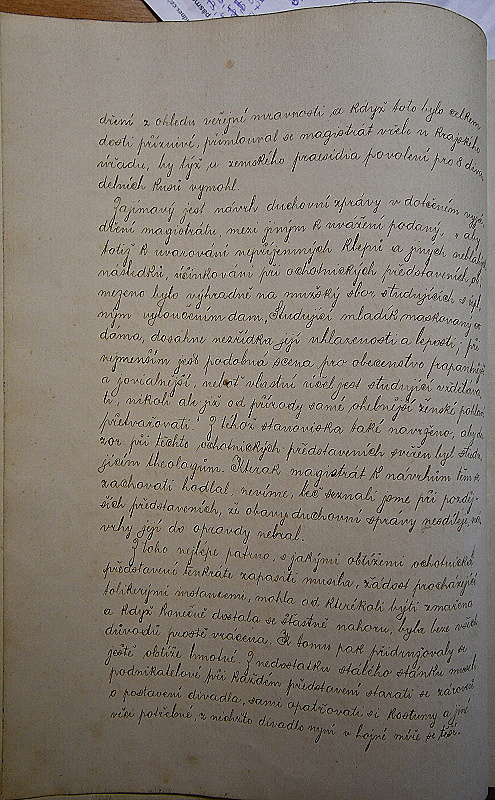 dření z ohledu veřejné mravnosti, a když toto bylo celkem
dosti příznivé, přimlouval se magistrát vřele u krajského
úřadu, by týž u zemského praesidia povolení pro 8 diva-
delních kusů vymohl.
Zajímavý jest návrh duchovní zprávy v dotčeném vyjá-
dření magistrátu, mezi jiným k uvážení podaný, "aby
totiž k uvarování nepříjemných klepů a jiných neblahých
následků, účinkování při ochotnických představeních, ob-
mezeno bylo výhradně na mužský sbor studujících, s úpl-
ným vyloučením dam. Studující mladík, maskovaný co
dáma, dosáhne nezřídka její uhlazenosti a leposti, při
nejmenším jest podobná scena pro obecenstvo frapantnější
a jovialnější, neboť vlastní účel jest studující vzdělává-
ti, nikoli ale již od přírody samé ohebnější ženské pohlaví
přetvařovati." Z téhož stanoviska také navrženo, aby do-
zor při těchto ochotnických představeních svěřen byl studu-
jícím theologům. Kterak magistrát k návrhům těm se
zachovati hodlal, nevíme, leč seznali jsme při pozděj-
ších představeních, že obavy duchovní správy nesdíleje, ná-
vrhy její do opravdy nebral.
Z toho nejlépe patrno, s jakými obtížemi ochotnická
představení tenkráte zápasiti musila, žádost procházející
tolikerými instancemi, mohla od kterékoli býti zmařena
a když konečně dostala se šťastně nahoru, byla beze všech
důvodů prostě vrácena. K tomu pak přidružovaly se
ještě obtíže hmotné. Z nedostatku stálého stánku museli
podnikatelové při každém představení starati se zároveň
o postavení divadla, sami opatřovati si kostumy a jiné
věci potřebné, z nichžto divadlo nyní v hojné míře se těší.